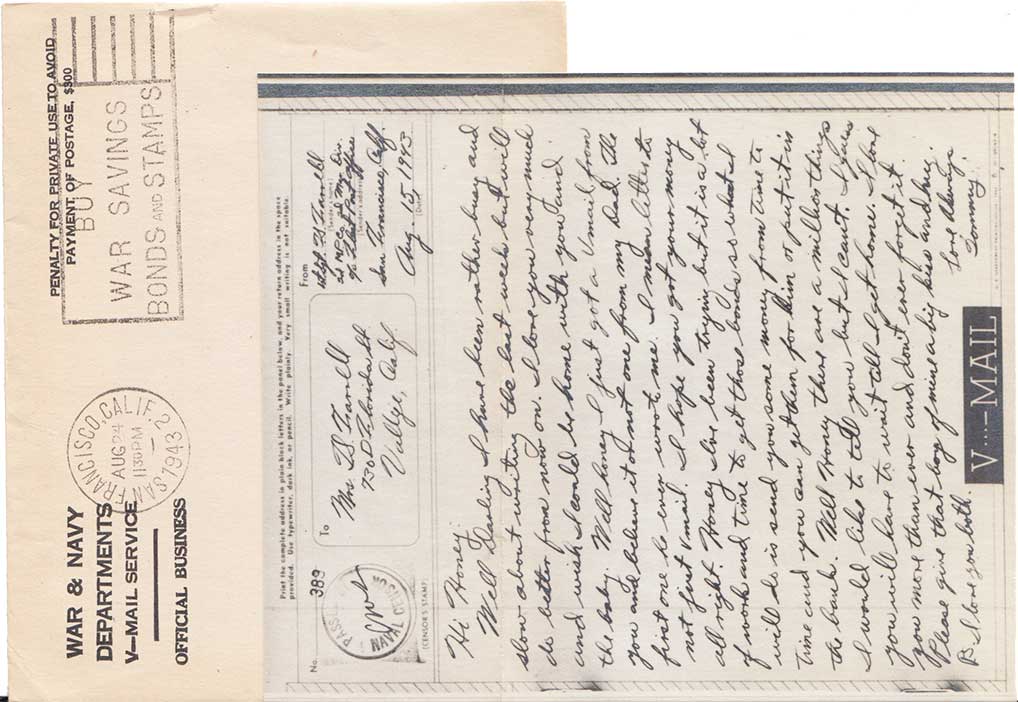 WAR & NAVY
DEPARTMENTS
V—MAIL SERVICE
OFFICIAL BUSINESS
SAN FRANCISCO, CALIF. 2
AUG 24
11 30 PM
1943
PENALTY FOR PRIVATE USE TO AVOID
PAYMENT OF POSTAGE, $300
BUY
WAR SAVINGS
BONDS AND STAMPS
Print the complete address in plain block letters in the panel below, and your return address in the space
provided. Use typewriter, dark ink, or pencil. Write plainly. Very small writing is not suitable.
No. 389
PASSED
NAVAL CENSOR
(CENSOR'S STAMP)
To
Mrs. Farrell
730 D Florida St
Vallejo, Calif.
From
(Sender's name)
(Sender's address)
Post Office
San Francisco, Calif
Aug. 15 1943
(Date)
Hi Honey
Well Darling I have been rather busy and
slow about writing the last week but will
do better from now on. I love you very much
and wish I could be home with you and
the baby. Well honey I just got a Vmail from
you and believe it or not one from my Dad. The
first one he ever wrote me. I mean letter to
not first Vmail. I hope you got your money
all right. Honey I've been trying but it is a lot
of work and time to get those bonds so what I
will do is send you some money from time to
time and you can get them for him or put it in
the bank. Well Honey there are a million things
I would like to tell you but I cant. I guess
you will have to wait till I get home. I love
you more than ever and don't ever forget it.
Please give that boy of mine a big kiss and hug.
B. I love you both. Love Always
V···—MAIL